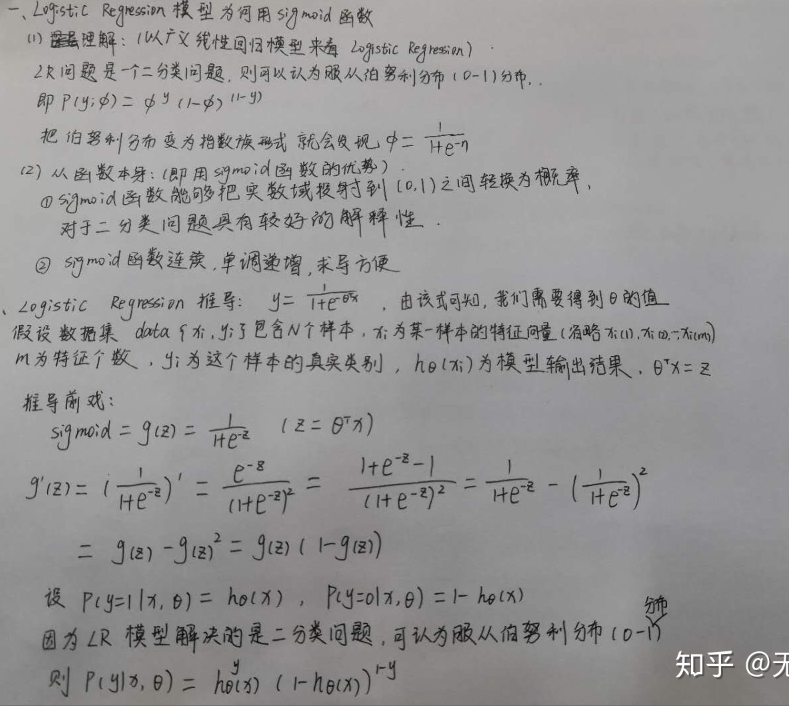 一、Logistic Regression 模型为何用 sigmoid 函数
(1) 理解:(从广义线性回归模型来看 Logistic Regression).
LR问题是一个二分类问题,则可以认为服从伯努利分布(0-1)分布..
即 P(y;φ) = φ^y (1-φ)^(1-y)
把伯努利分布变为指数族形式 就会发现 φ = 1/(1+e^-η)
(2) 从函数本身:(即用sigmoid函数的优势).
① sigmoid 函数能够把实数域投射到 (0,1) 之间转换为概率,
对于二分类问题具有较好的解释性.
② sigmoid函数连续,单调递增,求导方便
、Logistic Regression 推导: y = 1/(1+e^-θᵀx) , 由该式可知,我们需要得到θ的值
假设数据集 data {xi, yi} 包含N个样本,xi为某一样本的特征向量(省略 xi(1), xi(2),…,xi(m))
m为特征个数,yi为这个样本的真实类别,hθ(xi)为模型输出结果,θᵀx=z
推导前戏:
sigmoid = g(z) = 1/(1+e^-z) (z=θᵀx)
g'(z) = (1/(1+e^-z))' = e^-z/(1+e^-z)² = (1+e^-z-1)/(1+e^-z)² = 1/(1+e^-z) - (1/(1+e^-z))²
= g(z) - g(z)² = g(z)(1-g(z))
设 P(y=1|x,θ) = hθ(x), P(y=0|x,θ) = 1-hθ(x)
因为LR模型解决的是二分类问题,可认为服从伯努利分布(0-1)分布
则 P(y|x,θ) = hθ(x)^y (1-hθ(x))^1-y
知乎 @无